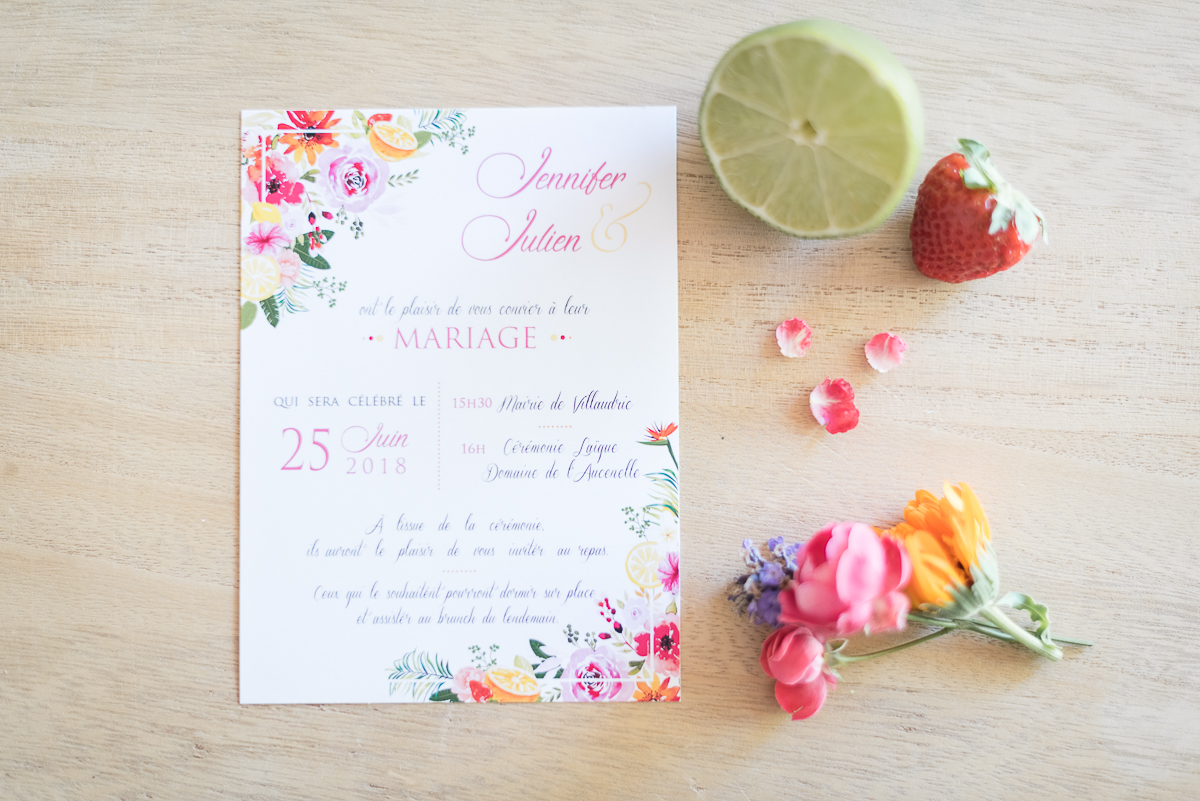 Jennifer
& Julien
ont le plaisir de vous convier à leur
MARIAGE
QUI SERA CÉLÉBRÉ LE
25 Juin
2018
15H30 Mairie de Villaudric
16H Cérémonie Laïque
Domaine de l'Aucenelle
À l'issue de la cérémonie,
ils auront le plaisir de vous inviter au repas.
Ceux qui le souhaitent pourront dormir sur place
et assister au brunch du lendemain.